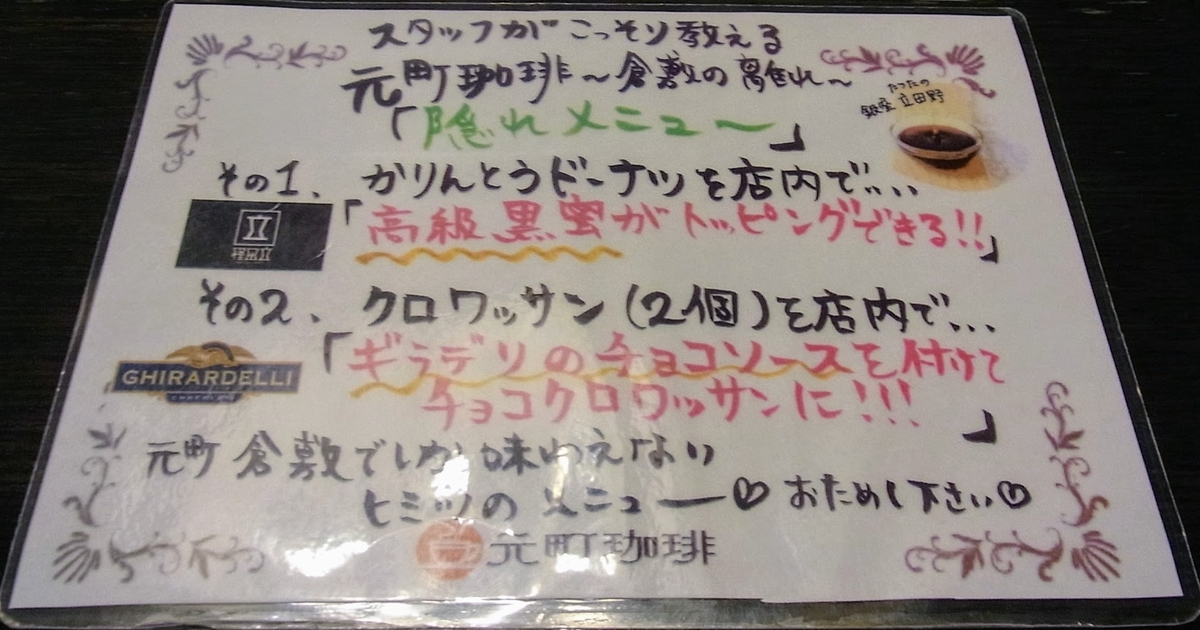 スタッフがこっそり教える
元町珈琲～倉敷の離れ～
「隠れメニュー」
たつたの
銀座 立田野
その1、かりんとうドーナツを店内で...
「高級黒蜜がトッピングできる!!」
その2、クロワッサン(2個)を店内で...
GHIRARDELLI
「ギラデリのチョコソースを付けて
チョコクロワッサンに!!!」
元町倉敷でしか味わえない
ヒミツのメニュー♡おためし下さい♡
元町珈琲